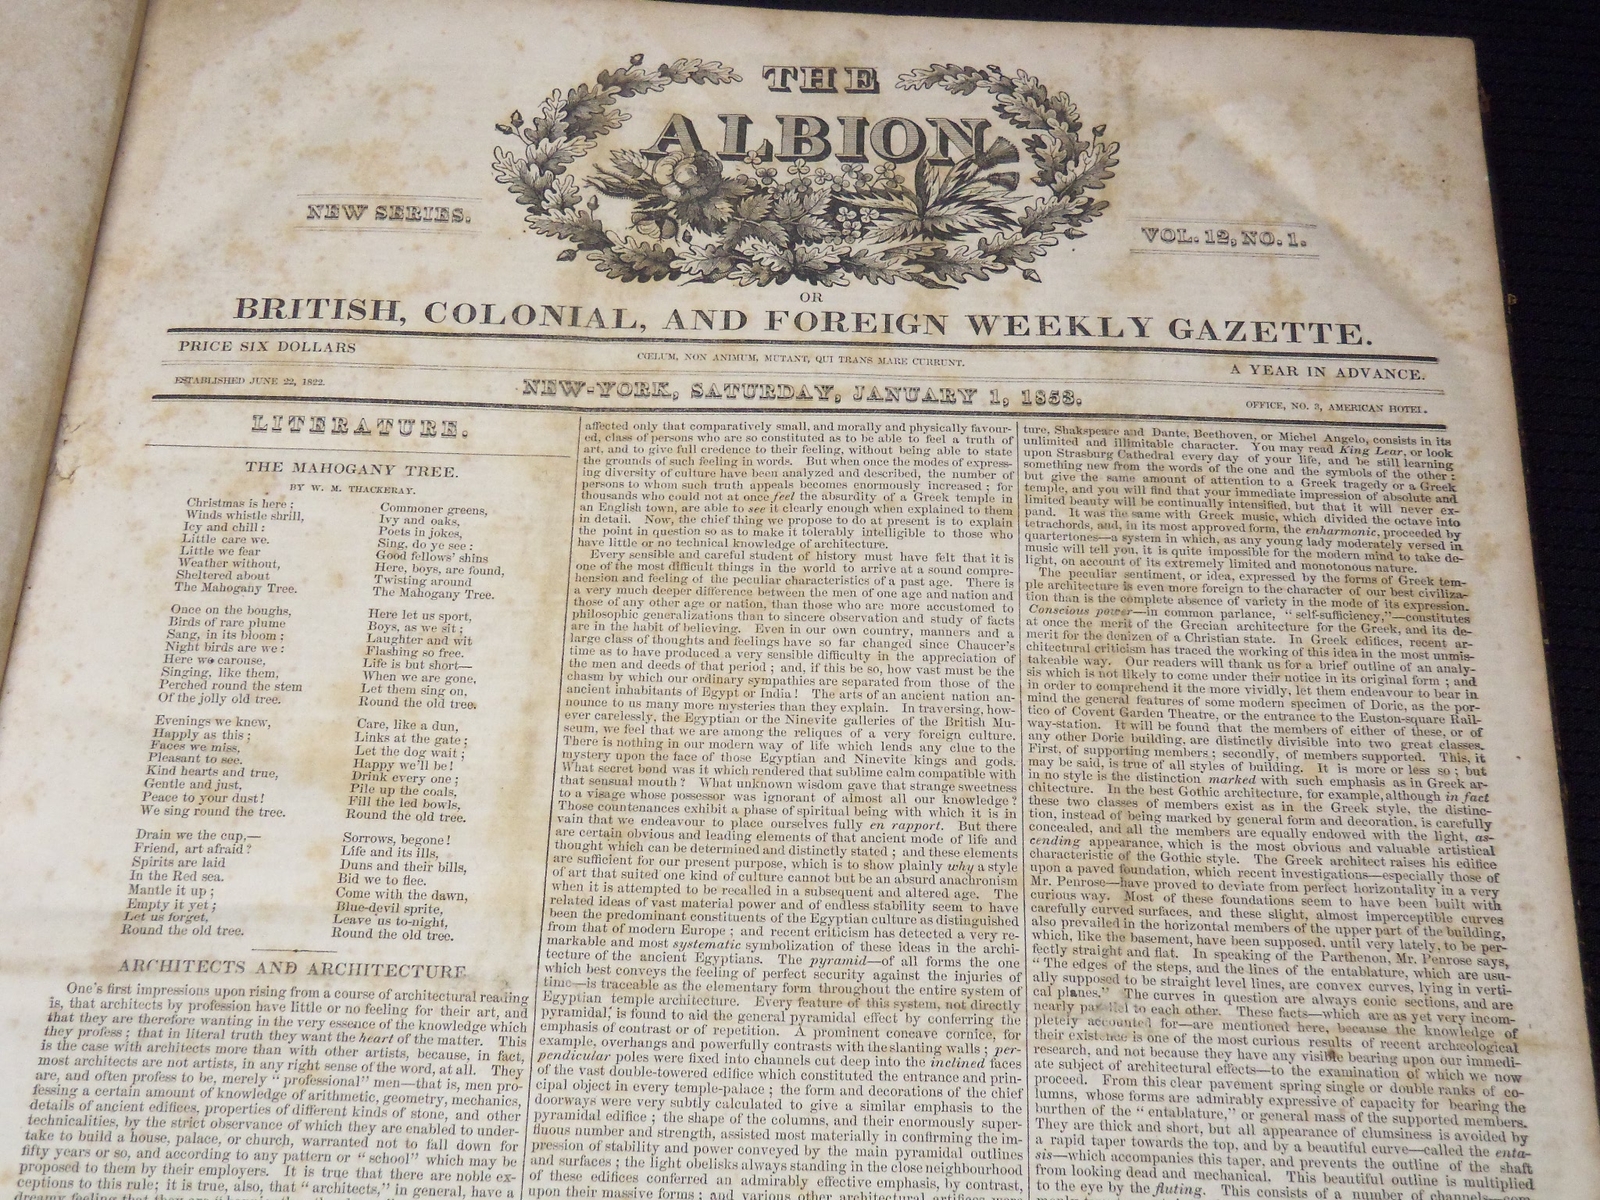 THE
ALBION
NEW SERIES.
VOL. 12, NO. 1.
OR
BRITISH, COLONIAL, AND FOREIGN WEEKLY GAZETTE.
PRICE SIX DOLLARS
CŒLUM, NON ANIMUM, MUTANT, QUI TRANS MARE CURRUNT.
A YEAR IN ADVANCE.
ESTABLISHED JUNE 22, 1822.
NEW-YORK, SATURDAY, JANUARY 1, 1853.
OFFICE, NO. 3, AMERICAN HOTEL.
LITERATURE.
THE MAHOGANY TREE.
BY W. M. THACKERAY.
Christmas is here;
Winds whistle shrill,
Icy and chill:
Little care we.
Little we fear
Weather without,
Sheltered about
The Mahogany Tree.
Once on the boughs,
Birds of rare plume
Sang, in its bloom;
Night birds are we:
Here we carouse,
Singing, like them,
Perched round the stem
Of the jolly old tree.
Evenings we knew,
Happy as this;
Faces we miss,
Pleasant to see.
Kind hearts and true,
Gentle and just,
Peace to your dust!
We sing round the tree.
Drain we the cup,—
Friend, art afraid?
Spirits are laid
In the Red sea.
Mantle it up;
Empty it yet;
Let us forget,
Round the old tree.
Commoner greens,
Ivy and oaks,
Poets in jokes,
Sing, do ye see:
Good fellows' shins
Here, boys, are found,
Twisting around
The Mahogany Tree.
Here let us sport,
Boys, as we sit;
Laughter and wit
Flashing so free.
Life is but short—
When we are gone,
Let them sing on,
Round the old tree.
Care, like a dun,
Links at the gate;
Let the dog wait;
Happy we'll be!
Drink every one;
Pile up the coals,
Fill the led bowls,
Round the old tree.
Sorrows, begone!
Life and its ills,
Duns and their bills,
Bid we to flee.
Come with the dawn,
Blue-devil sprite,
Leave us to-night,
Round the old tree.
ARCHITECTS AND ARCHITECTURE
One's first impressions upon rising from a course of architectural reading
is, that architects by profession have little or no feeling for their art, and
that they are therefore wanting in the very essence of the knowledge which
they profess; that in literal truth they want the heart of the matter. This
is the case with architects more than with other artists, because, in fact,
most architects are not artists, in any right sense of the word, at all. They
are, and often profess to be, merely "professional" men—that is, men pro-
fessing a certain amount of knowledge of arithmetic, geometry, mechanics,
details of ancient edifices, properties of different kinds of stone, and other
technicalities, by the strict observance of which they are enabled to under-
take to build a house, palace, or church, warranted not to fall down for
fifty years or so, and according to any pattern or "school" which may be
proposed to them by their employers. It is true that there are noble ex-
ceptions to this rule; it is true, also, that "architects," in general, have a
affected only that comparatively small, and morally and physically favour-
ed, class of persons who are so constituted as to be able to feel a truth of
art, and to give full credence to their feeling, without being able to state
the grounds of such feeling in words. But when once the modes of express-
ing diversity of culture have been analyzed and described, the number of
persons to whom such truth appeals becomes enormously increased; for
thousands who could not at once feel the absurdity of a Greek temple in
an English town, are able to see it clearly enough when explained to them
in detail. Now, the chief thing we propose to do at present is to explain
the point in question so as to make it tolerably intelligible to those who
have little or no technical knowledge of architecture.
Every sensible and careful student of history must have felt that it is
one of the most difficult things in the world to arrive at a sound compre-
hension and feeling of the peculiar characteristics of a past age. There is
a very much deeper difference between the men of one age and nation and
those of any other age or nation, than those who are more accustomed to
philosophic generalizations than to sincere observation and study of facts
are in the habit of believing. Even in our own country, manners and a
large class of thoughts and feelings have so far changed since Chaucer's
time as to have produced a very sensible difficulty in the appreciation of
the men and deeds of that period; and, if this be so, how vast must be the
chasm by which our ordinary sympathies are separated from those of the
ancient inhabitants of Egypt or India! The arts of an ancient nation an-
nounce to us many more mysteries than they explain. In traversing, how-
ever carelessly, the Egyptian or the Ninevite galleries of the British Mu-
seum, we feel that we are among the reliques of a very foreign culture.
There is nothing in our modern way of life which lends any clue to the
mystery upon the face of those Egyptian and Ninevite kings and gods.
What secret bond was it which rendered that sublime calm compatible with
that sensual mouth? What unknown wisdom gave that strange sweetness
to a visage whose possessor was ignorant of almost all our knowledge?
Those countenances exhibit a phase of spiritual being with which it is in
vain that we endeavour to place ourselves fully en rapport. But there
are certain obvious and leading elements of that ancient mode of life and
thought which can be determined and distinctly stated; and these elements
are sufficient for our present purpose, which is to show plainly why a style
of art that suited one kind of culture cannot but be an absurd anachronism
when it is attempted to be recalled in a subsequent and altered age. The
related ideas of vast material power and of endless stability seem to have
been the predominant constituents of the Egyptian culture as distinguished
from that of modern Europe; and recent criticism has detected a very re-
markable and most systematic symbolization of these ideas in the archi-
tecture of the ancient Egyptians. The pyramid—of all forms the one
which best conveys the feeling of perfect security against the injuries of
time—is traceable as the elementary form throughout the entire system of
Egyptian temple architecture. Every feature of this system, not directly
pyramidal, is found to aid the general pyramidal effect by conferring the
emphasis of contrast or of repetition. A prominent concave cornice, for
example, overhangs and powerfully contrasts with the slanting walls; per-
pendicular poles were fixed into channels cut deep into the inclined faces
of the vast double-towered edifice which constituted the entrance and prin-
cipal object in every temple-palace; the form and decorations of the chief
doorways were very subtly calculated to give a similar emphasis to the
pyramidal edifice; the shape of the columns, and their enormously super-
fluous number and strength, assisted most materially in confirming the im-
pression of stability and power conveyed by the main pyramidal outlines
and surfaces; the light obelisks always standing in the close neighbourhood
of these edifices conferred an admirably effective emphasis, by contrast,
upon their massive forms; and various other architectural artifices were
ture, Shakspeare and Dante, Beethoven, or Michel Angelo, consists in its
unlimited and illimitable character. You may read King Lear, or look
upon Strasburg Cathedral every day of your life, and be still learning
something new from the words of the one and the symbols of the other:
but give the same amount of attention to a Greek tragedy or a Greek
temple, and you will find that your immediate impression of absolute and
limited beauty will be continually intensified, but that it will never ex-
pand. It was the same with Greek music, which divided the octave into
tetrachords, and, in its most approved form, the enharmonic, proceeded by
quartertones—a system in which, as any young lady moderately versed in
music will tell you, it is quite impossible for the modern mind to take de-
light, on account of its extremely limited and monotonous nature.
The peculiar sentiment, or idea, expressed by the forms of Greek tem-
ple architecture is even more foreign to the character of our best civiliza-
tion than is the complete absence of variety in the mode of its expression.
Conscious power—in common parlance, "self-sufficiency,"—constitutes
at once the merit of the Grecian architecture for the Greek, and its de-
merit for the denizen of a Christian state. In Greek edifices, recent ar-
chitectural criticism has traced the working of this idea in the most unmis-
takeable way. Our readers will thank us for a brief outline of an analy-
sis which is not likely to come under their notice in its original form; and
in order to comprehend it the more vividly, let them endeavour to bear in
mind the general features of some modern specimen of Doric, as the por-
tico of Covent Garden Theatre, or the entrance to the Euston-square Rail-
way-station. It will be found that the members of either of these, or of
any other Doric building, are distinctly divisible into two great classes.
First, of supporting members; secondly, of members supported. This, it
may be said, is true of all styles of building. It is more or less so; but
in no style is the distinction marked with such emphasis as in Greek ar-
chitecture. In the best Gothic architecture, for example, although in fact
these two classes of members exist as in the Greek style, the distinc-
tion, instead of being marked by general form and decoration, is carefully
concealed, and all the members are equally endowed with the light, as-
cending appearance, which is the most obvious and valuable artistical
characteristic of the Gothic style. The Greek architect raises his edifice
upon a paved foundation, which recent investigations—especially those of
Mr. Penrose—have proved to deviate from perfect horizontality in a very
curious way. Most of these foundations seem to have been built with
carefully curved surfaces, and these slight, almost imperceptible curves
also prevailed in the horizontal members of the upper part of the building,
which, like the basement, have been supposed, until very lately, to be per-
fectly straight and flat. In speaking of the Parthenon, Mr. Penrose says,
"The edges of the steps, and the lines of the entablature, which are usu-
ally supposed to be straight level lines, are convex curves, lying in verti-
cal planes." The curves in question are always conic sections, and are
nearly parallel to each other. These facts—which are as yet very incom-
pletely accounted for—are mentioned here, because the knowledge of
their existence is one of the most curious results of recent archæological
research, and not because they have any visible bearing upon our immedi-
ate subject of architectural effects—to the examination of which we now
proceed. From this clear pavement spring single or double ranks of co-
lumns, whose forms are admirably expressive of capacity for bearing the
burthen of the "entablature," or general mass of the supported members.
They are thick and short, but all appearance of clumsiness is avoided by
a rapid taper towards the top, and by a beautiful curve—called the enta-
sis—which accompanies this taper, and prevents the outline of the shaft
from looking dead and mechanical. This beautiful outline is multiplied
to the eye by the fluting. This consists of a number of